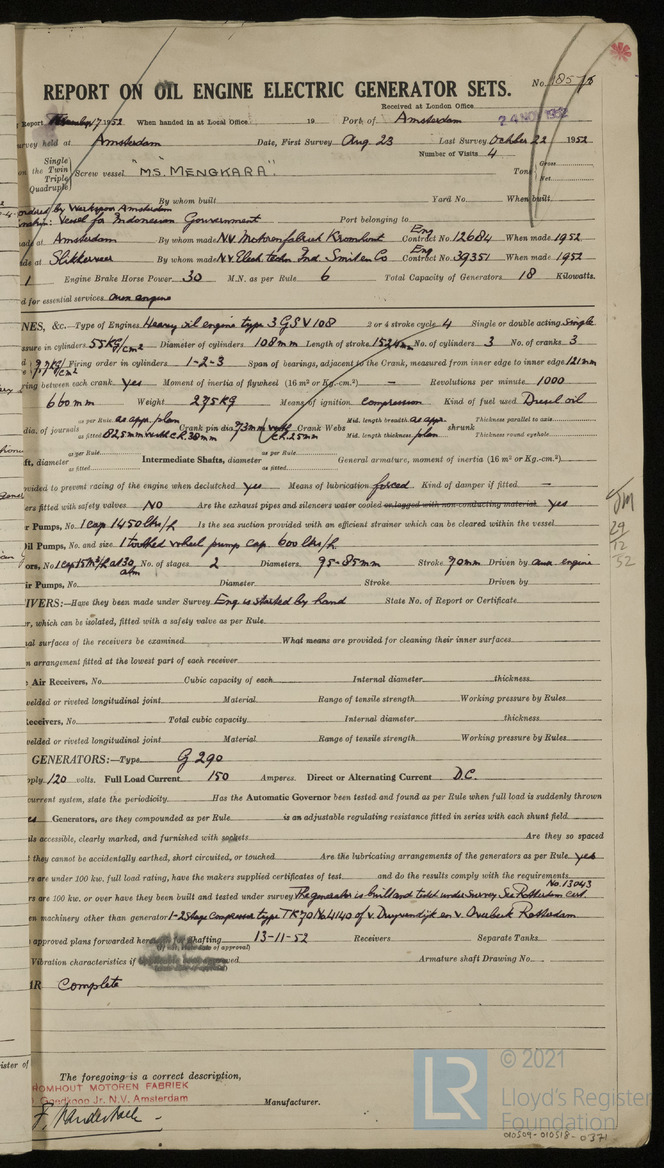 REPORT ON OIL ENGINE ELECTRIC GENERATOR SETS. No.
Received at London Office
Report 17 1952 When handed in at Local Office 19 Port of Amsterdam 24 NOV 1952
survey held at Amsterdam Date, First Survey Aug 23 Last Survey October 22 1952
Number of Visits 4
Single
on the Twin
Triple
Quadruple
Screw vessel "MS. MENGKARA". Tons Gross Net
By whom built Yard No. When built
ordered by Werkspoor Amsterdam
Vessel for Indonesian Government Port belonging to
made at Amsterdam By whom made N.V. Motorenfabriek Kromhout Eng Contract No. 12684 When made 1952
made at Slikkerveer By whom made N.V. Electr techn Ind. Smit en Co Eng Contract No. 39351 When made 1952
1 Engine Brake Horse Power 30 M.N. as per Rule 6 Total Capacity of Generators 18 Kilowatts.
d for essential services
NES, &c.—Type of Engines Heavy oil engine type 3 GSV 108 2 or 4 stroke cycle 4 Single or double acting Single
ssure in cylinders 55 KG/cm² Diameter of cylinders 108 mm Length of stroke 152.4 mm No. of cylinders 3 No. of cranks 3
Firing order in cylinders 1-2-3 Span of bearings, adjacent to the Crank, measured from inner edge to inner edge 121 mm
ring between each crank yes Moment of inertia of flywheel (16 m² or Kg.-cm.²) — Revolutions per minute 1000
660 mm Weight 275 KG Means of ignition compression Kind of fuel used Diesel oil
dia. of journals as per Rule as appr. plan as fitted Crank pin dia. Crank Webs Mid. length breadth as appr. Mid. length thickness plan shrunk Thickness parallel to axis Thickness round eyehole
ft, diameter as per Rule as fitted Intermediate Shafts, diameter as per Rule as fitted General armature, moment of inertia (16 m² or Kg.-cm.²)
ovided to prevent racing of the engine when declutched yes Means of lubrication forced Kind of damper if fitted —
ers fitted with safety valves NO Are the exhaust pipes and silencers water cooled or lagged with non-conducting material yes
r Pumps, No. 1 cap 1450 lbs/h Is the sea suction provided with an efficient strainer which can be cleared within the vessel
Oil Pumps, No. and size 1 toothed wheel pump cap. 600 lbs/h
ors, No. No. of stages 2 Diameters 95-85 mm Stroke 70 mm Driven by aux engine
ir Pumps, No. Diameter Stroke Driven by
IVERS:—Have they been made under Survey Eng is started by hand State No. of Report or Certificate
r, which can be isolated, fitted with a safety valve as per Rule
nal surfaces of the receivers be examined What means are provided for cleaning their inner surfaces
n arrangement fitted at the lowest part of each receiver
Air Receivers, No. Cubic capacity of each Internal diameter thickness
welded or riveted longitudinal joint Material Range of tensile strength Working pressure by Rules
Receivers, No. Total cubic capacity Internal diameter thickness
welded or riveted longitudinal joint Material Range of tensile strength Working pressure by Rules
GENERATORS:—Type G 290
pply 120 volts. Full Load Current 150 Amperes. Direct or Alternating Current D.C.
current system, state the periodicity Has the Automatic Governor been tested and found as per Rule when full load is suddenly thrown
Generators, are they compounded as per Rule is an adjustable regulating resistance fitted in series with each shunt field
ls accessible, clearly marked, and furnished with sockets Are they so spaced
t they cannot be accidentally earthed, short circuited, or touched Are the lubricating arrangements of the generators as per Rule yes
rs are under 100 kw. full load rating, have the makers supplied certificates of test and do the results comply with the requirements
No. 13043
rs are 100 kw. or over have they been built and tested under survey The generator is built and tested under Survey See Rotterdam cert.
en machinery other than generator 1-2 Stage Compressor type TK70 No 4140 of v. Duyvendijk en v. Overbeek Rotterdam
approved plans forwarded for Shafting 13-11-52 Receivers Separate Tanks
Vibration characteristics if Armature shaft Drawing No.
IR Complete
JM
29
12
52
The foregoing is a correct description,
ROMHOUT MOTOREN FABRIEK
Goedkoop Jr. N.V. Amsterdam
Manufacturer.
LR © 2021
Lloyd's Register
Foundation
010509-010518-0371